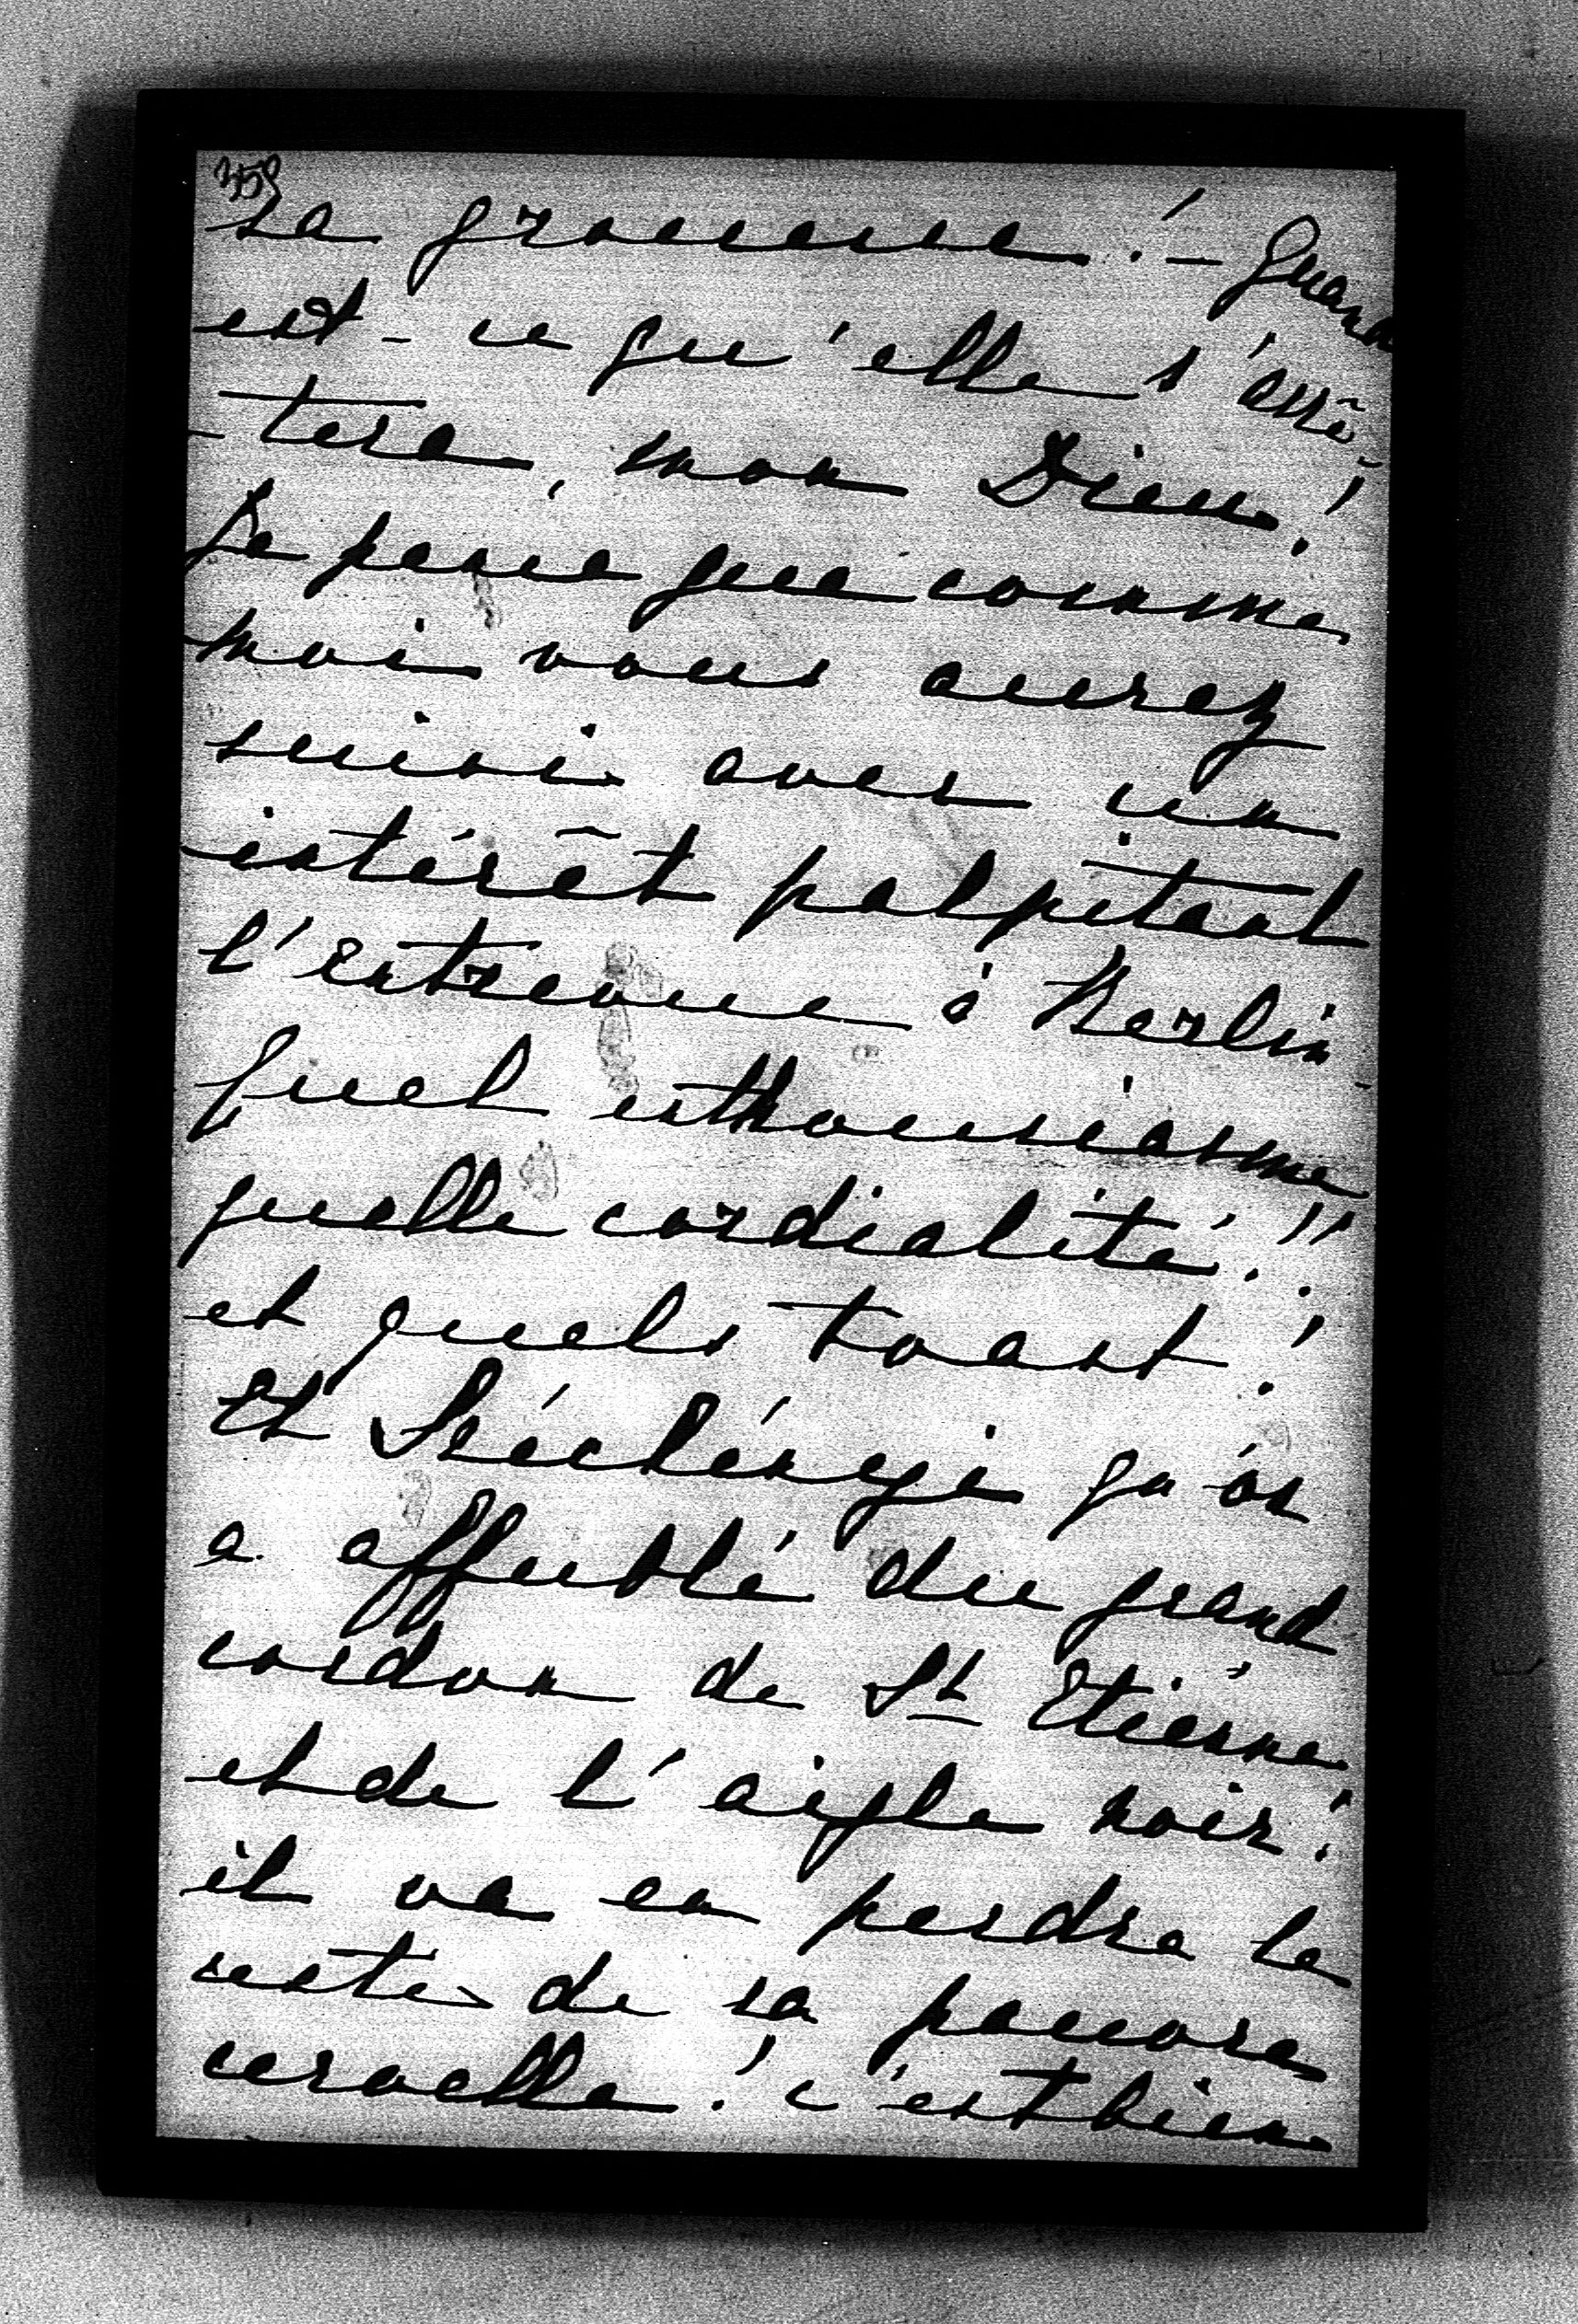 358
sa grossesse! — Quand
est-ce qu'elle s'arrê-
-tera, mon Dieu!
Je pense que comme
moi vous aurez
suivi avec un
intérêt palpitant
l'entrevue à Berlin.
quel enthousiasme
quelle cordialité!!
et quels toast!
Et Széchényi qu'on
a affublé du grand
cordon de St Etienne
et de l'aigle noir!
il va en perdre le
reste de sa pauvre
cervelle! c'est bien